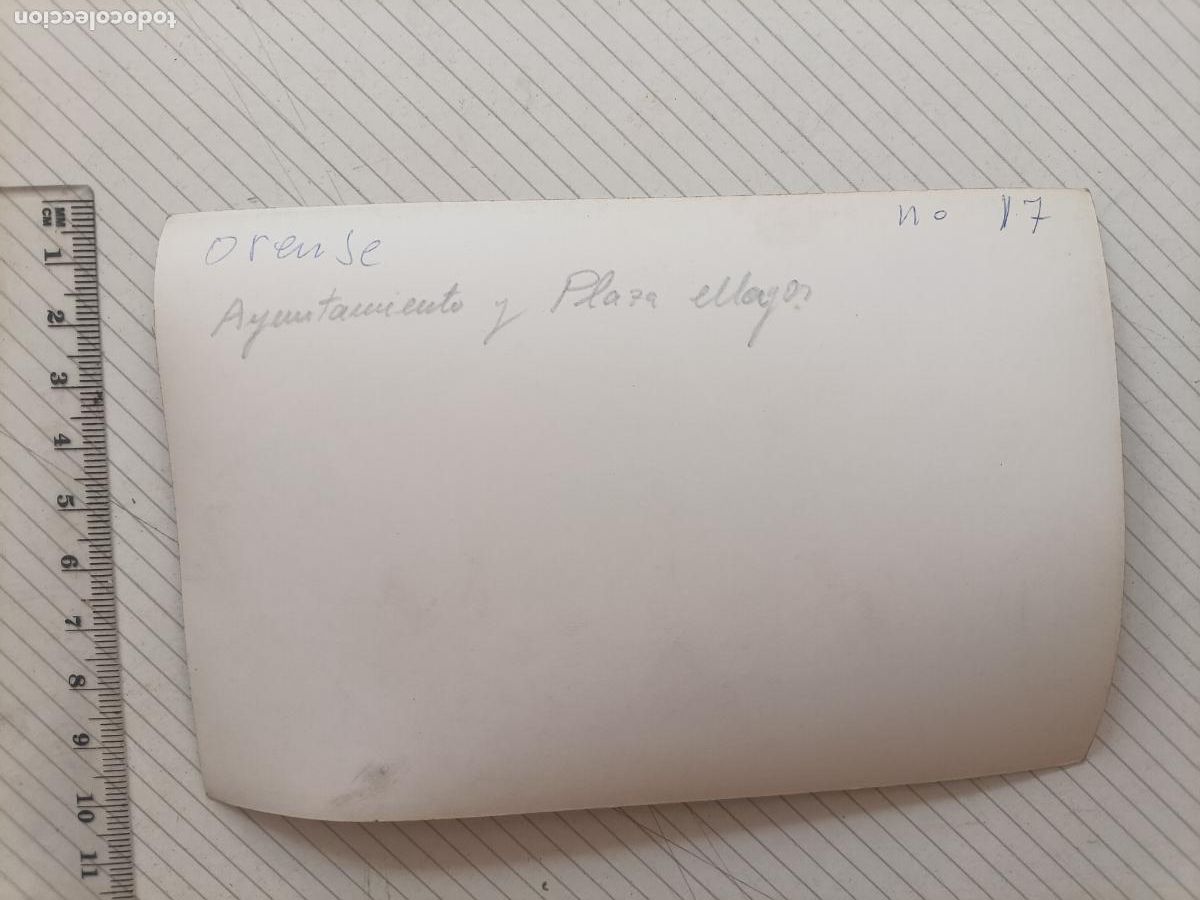 todocoleccion
orense
no 17
Ayuntamiento y Plaza Mayor
MM
CM
1
2
3
4
5
6
7
8
9
10
11